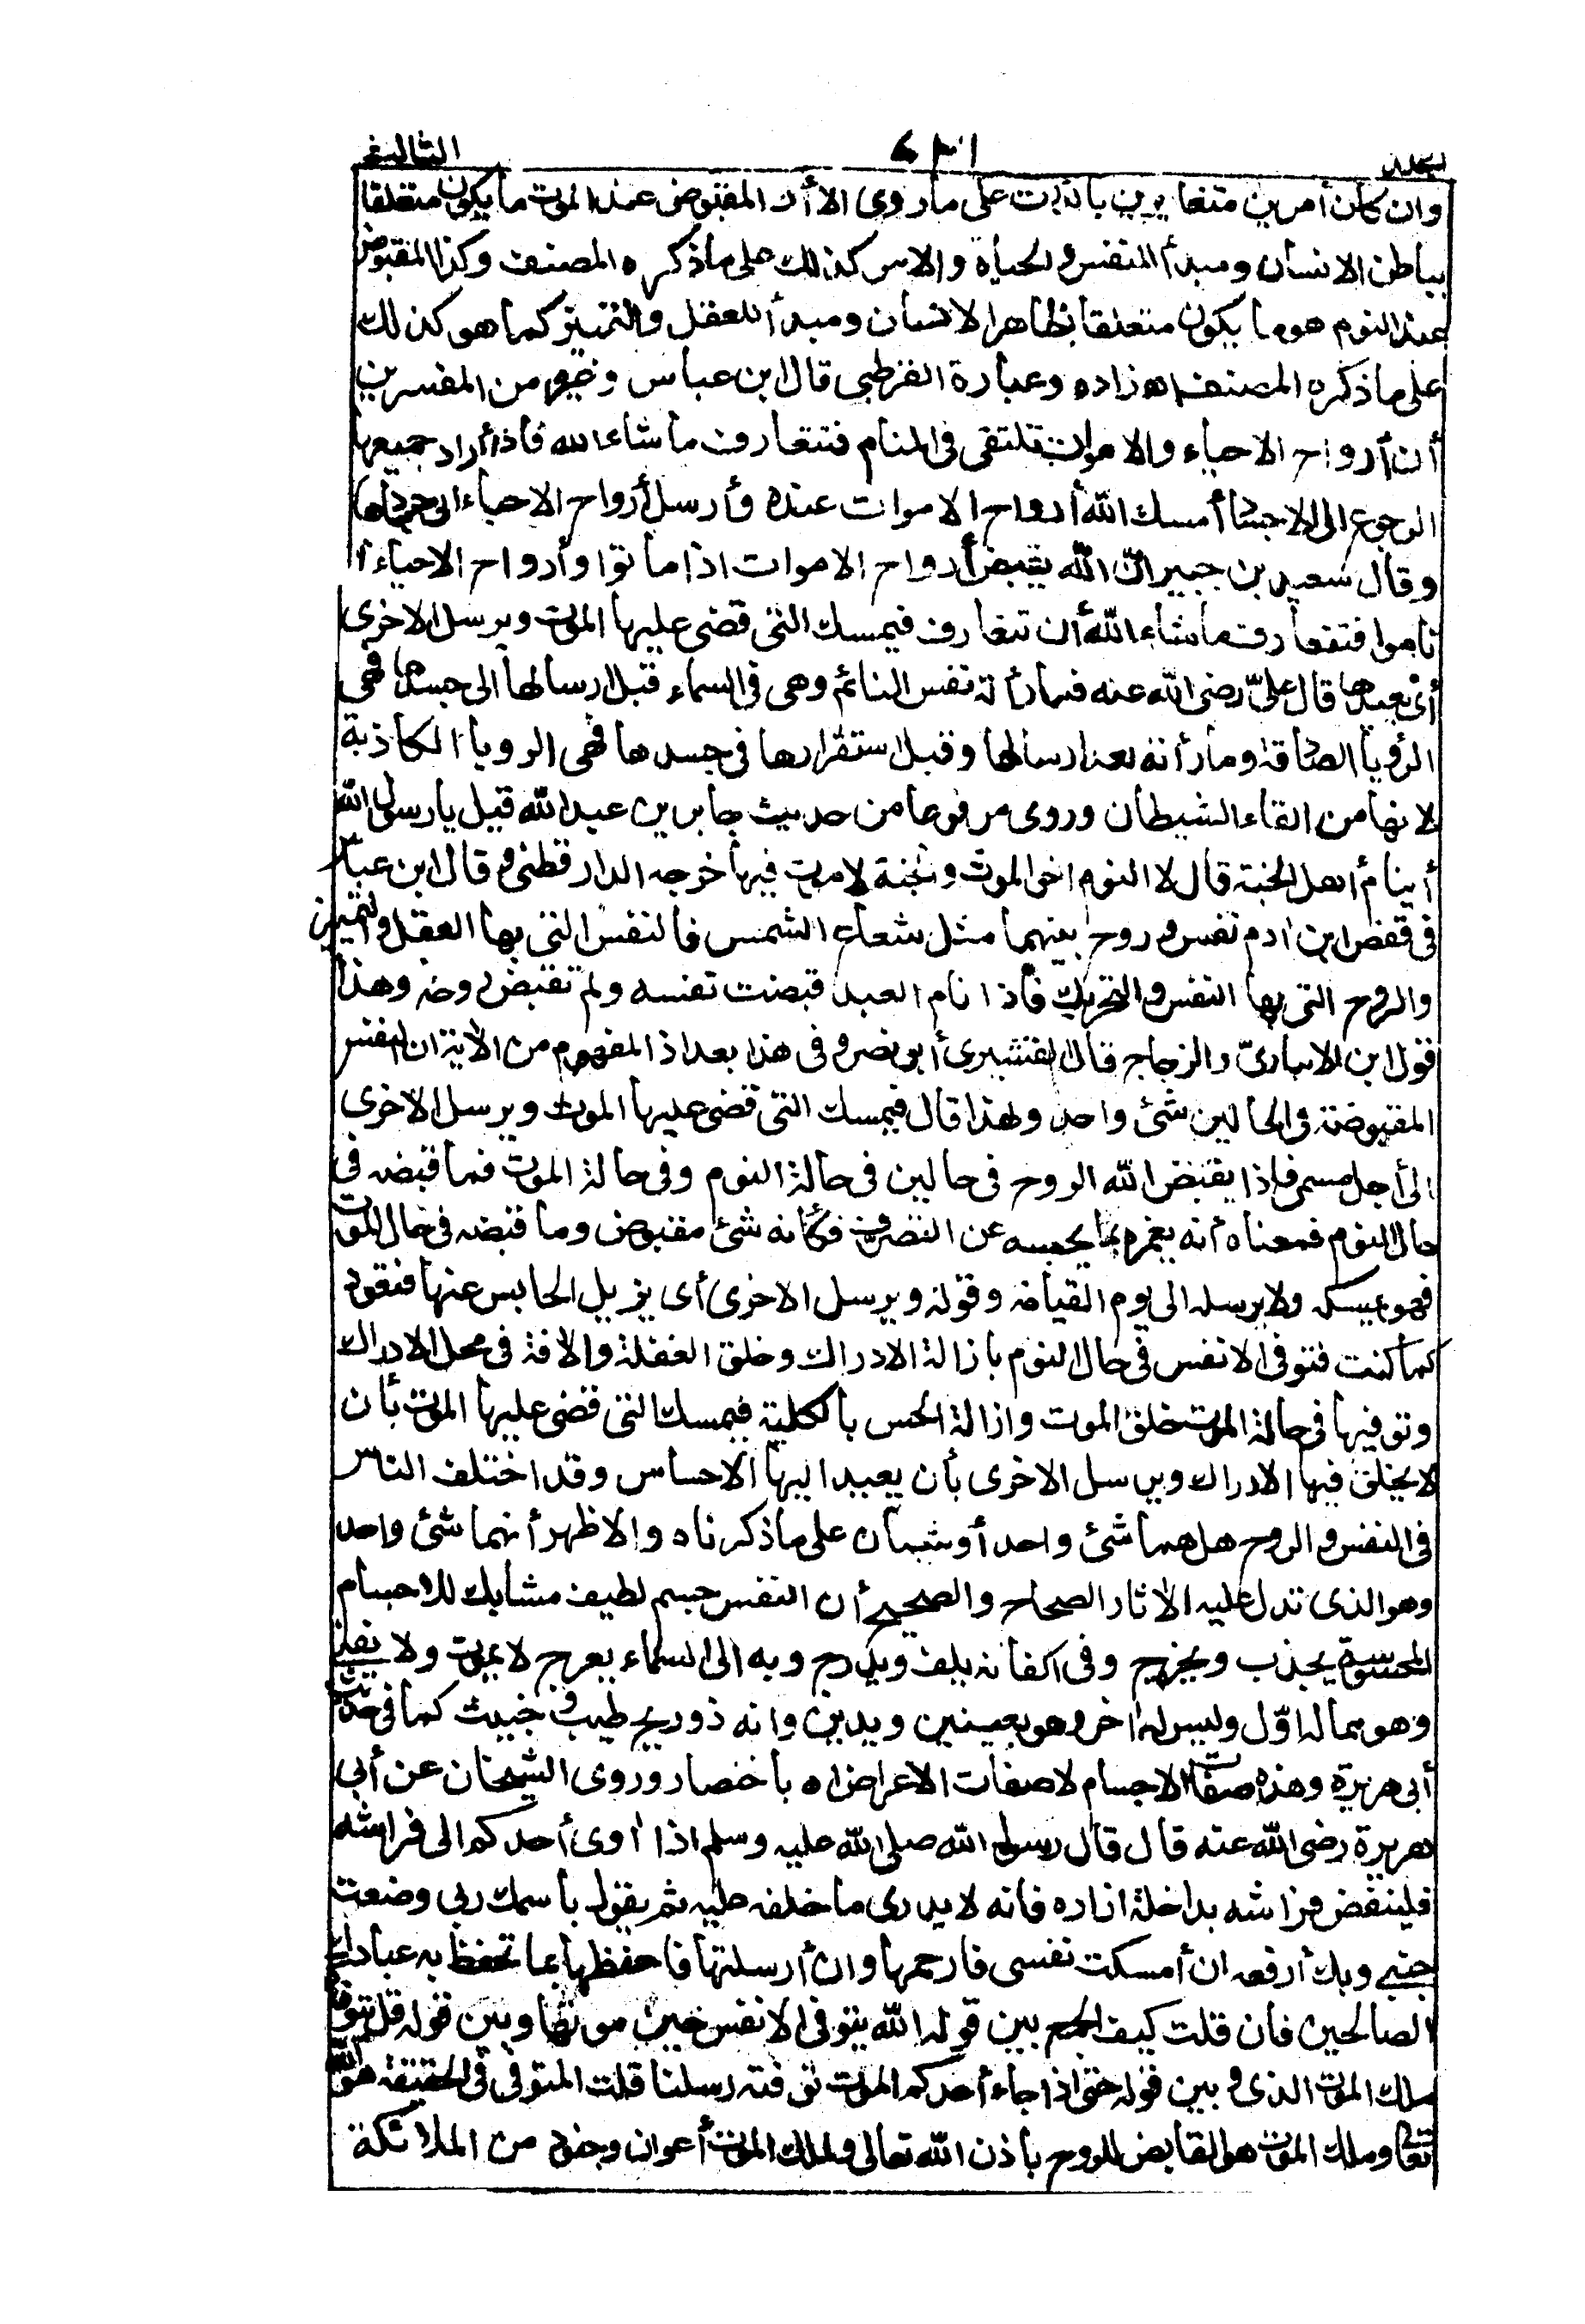 مجلد ٦٣١ الثالث
وان كان أمرين متغايرين بالذات على ما روى الا أن المقبوض عند الموت ما يكون متعلقا
بباطن الانسان ومبدأ النفس والحياة والامر كذلك على ما ذكره المصنف وكذا المقبوض
عند النوم هو ما يكون متعلقا بظاهر الانسان ومبدأ للعقل والتمييز كما هو كذلك
على ما ذكره المصنف اه زاده وعبارة القرطبى قال ابن عباس وغيره من المفسرين
أن أرواح الاحياء والاموات تلتقى فى المنام فتتعارف ما شاء الله فاذا أراد جميعها
الرجوع الى الاجساد أمسك الله أرواح الاموات عنده وأرسل أرواح الاحياء الى أجسادها
وقال سعيد بن جبير ان الله يقبض أرواح الاموات اذا ماتوا وأرواح الاحياء اذا
ناموا فتتعارف ما شاء الله أن تتعارف فيمسك التى قضى عليها الموت ويرسل الاخرى
أى يعيدها قال علىّ رضى الله عنه فما رأته نفس النائم وهى فى السماء قبل ارسالها الى جسدها فهى
الرؤيا الصادقة وما رأته بعد ارسالها وقبل استقرارها فى جسدها فهى الرويا الكاذبة
لانها من القاء الشيطان وروى مرفوعا من حديث جابر بن عبد الله قيل يا رسول الله
أينام أهل الجنة قال لا النوم اخو الموت والجنة لا موت فيها أخرجه الدارقطنى وقال ابن عباس
فى قفص ابن ادم نفس وروح بينهما مثل شعاع الشمس فالنفس التى بها العقل والتمييز
والروح التى بها النفس والتحريك فاذا نام العبد قبضت نفسه ولم تقبض روحه وهذا
قول ابن الانبارىّ والزجاج قال القشيرى أبو نصر وفى هذا بعد اذ المفهوم من الآية ان النفس
المقبوضة فى الحالين شئ واحد ولهذا قال فيمسك التى قضى عليها الموت ويرسل الاخرى
الى أجل مسمى فاذا يقبض الله الروح فى حالين فى حالة النوم وفى حالة الموت فما قبضه فى
حال النوم فمعناه أنه يغمره بما يحبسه عن التصرف فكأنه شئ مقبوض وما قبضه فى حال الموت
فهو يمسكه ولا يرسله الى يوم القيامة وقوله ويرسل الاخرى أى يزيل الحابس عنها فتعود
كما كانت فتوفى الانفس فى حال النوم بازالة الادراك وخلق الغفلة والافة فى محل الادراك
وتوفيها فى حالة الموت خلق الموت وازالة الحس بالكلية فيمسك التى قضى عليها الموت بأن
لا يخلق فيها الادراك ويرسل الاخرى بأن يعيد اليها الاحساس وقد اختلف الناس
فى النفس والروح هل هما شئ واحد أو شيئان على ما ذكرناه والاظهر أنهما شئ واحد
وهو الذى تدل عليه الآثار الصحاح والصحيح أن النفس جسم لطيف مشابك للاجسام
المحسوسة يجذب ويخرج وفى اكفانه يلف ويدرج وبه الى السماء يعرج لا يموت ولا يفنى
وهو مما له اوّل وليس له اخر وهو بعينين ويدين وانه ذو ريح طيب وخبيث كما فى حديث
أبى هريرة وهذه صفات الاجسام لا صفات الاعراض اه باختصار وروى الشيخان عن أبى
هريرة رضى الله عنه قال قال رسول الله صلى الله عليه وسلم اذا أوى أحدكم الى فراشه
فلينفض فراشه بداخلة ازاره فانه لا يدرى ما خلفه عليه ثم يقول باسمك ربى وضعت
جنبى وبك أرفعه ان أمسكت نفسى فارحمها وان أرسلتها فاحفظها بما تحفظ به عبادك
الصالحين فان قلت كيف الجمع بين قوله الله يتوفى الانفس حين موتها وبين قوله قل يتوفاكم
ملك الموت الذى وبين قوله حتى اذا جاء أحدكم الموت توفته رسلنا قلت المتوفى فى الحقيقة هو الله
تعالى وملك الموت هو القابض للروح باذن الله تعالى ولملك الموت أعوان وجنود من الملائكة